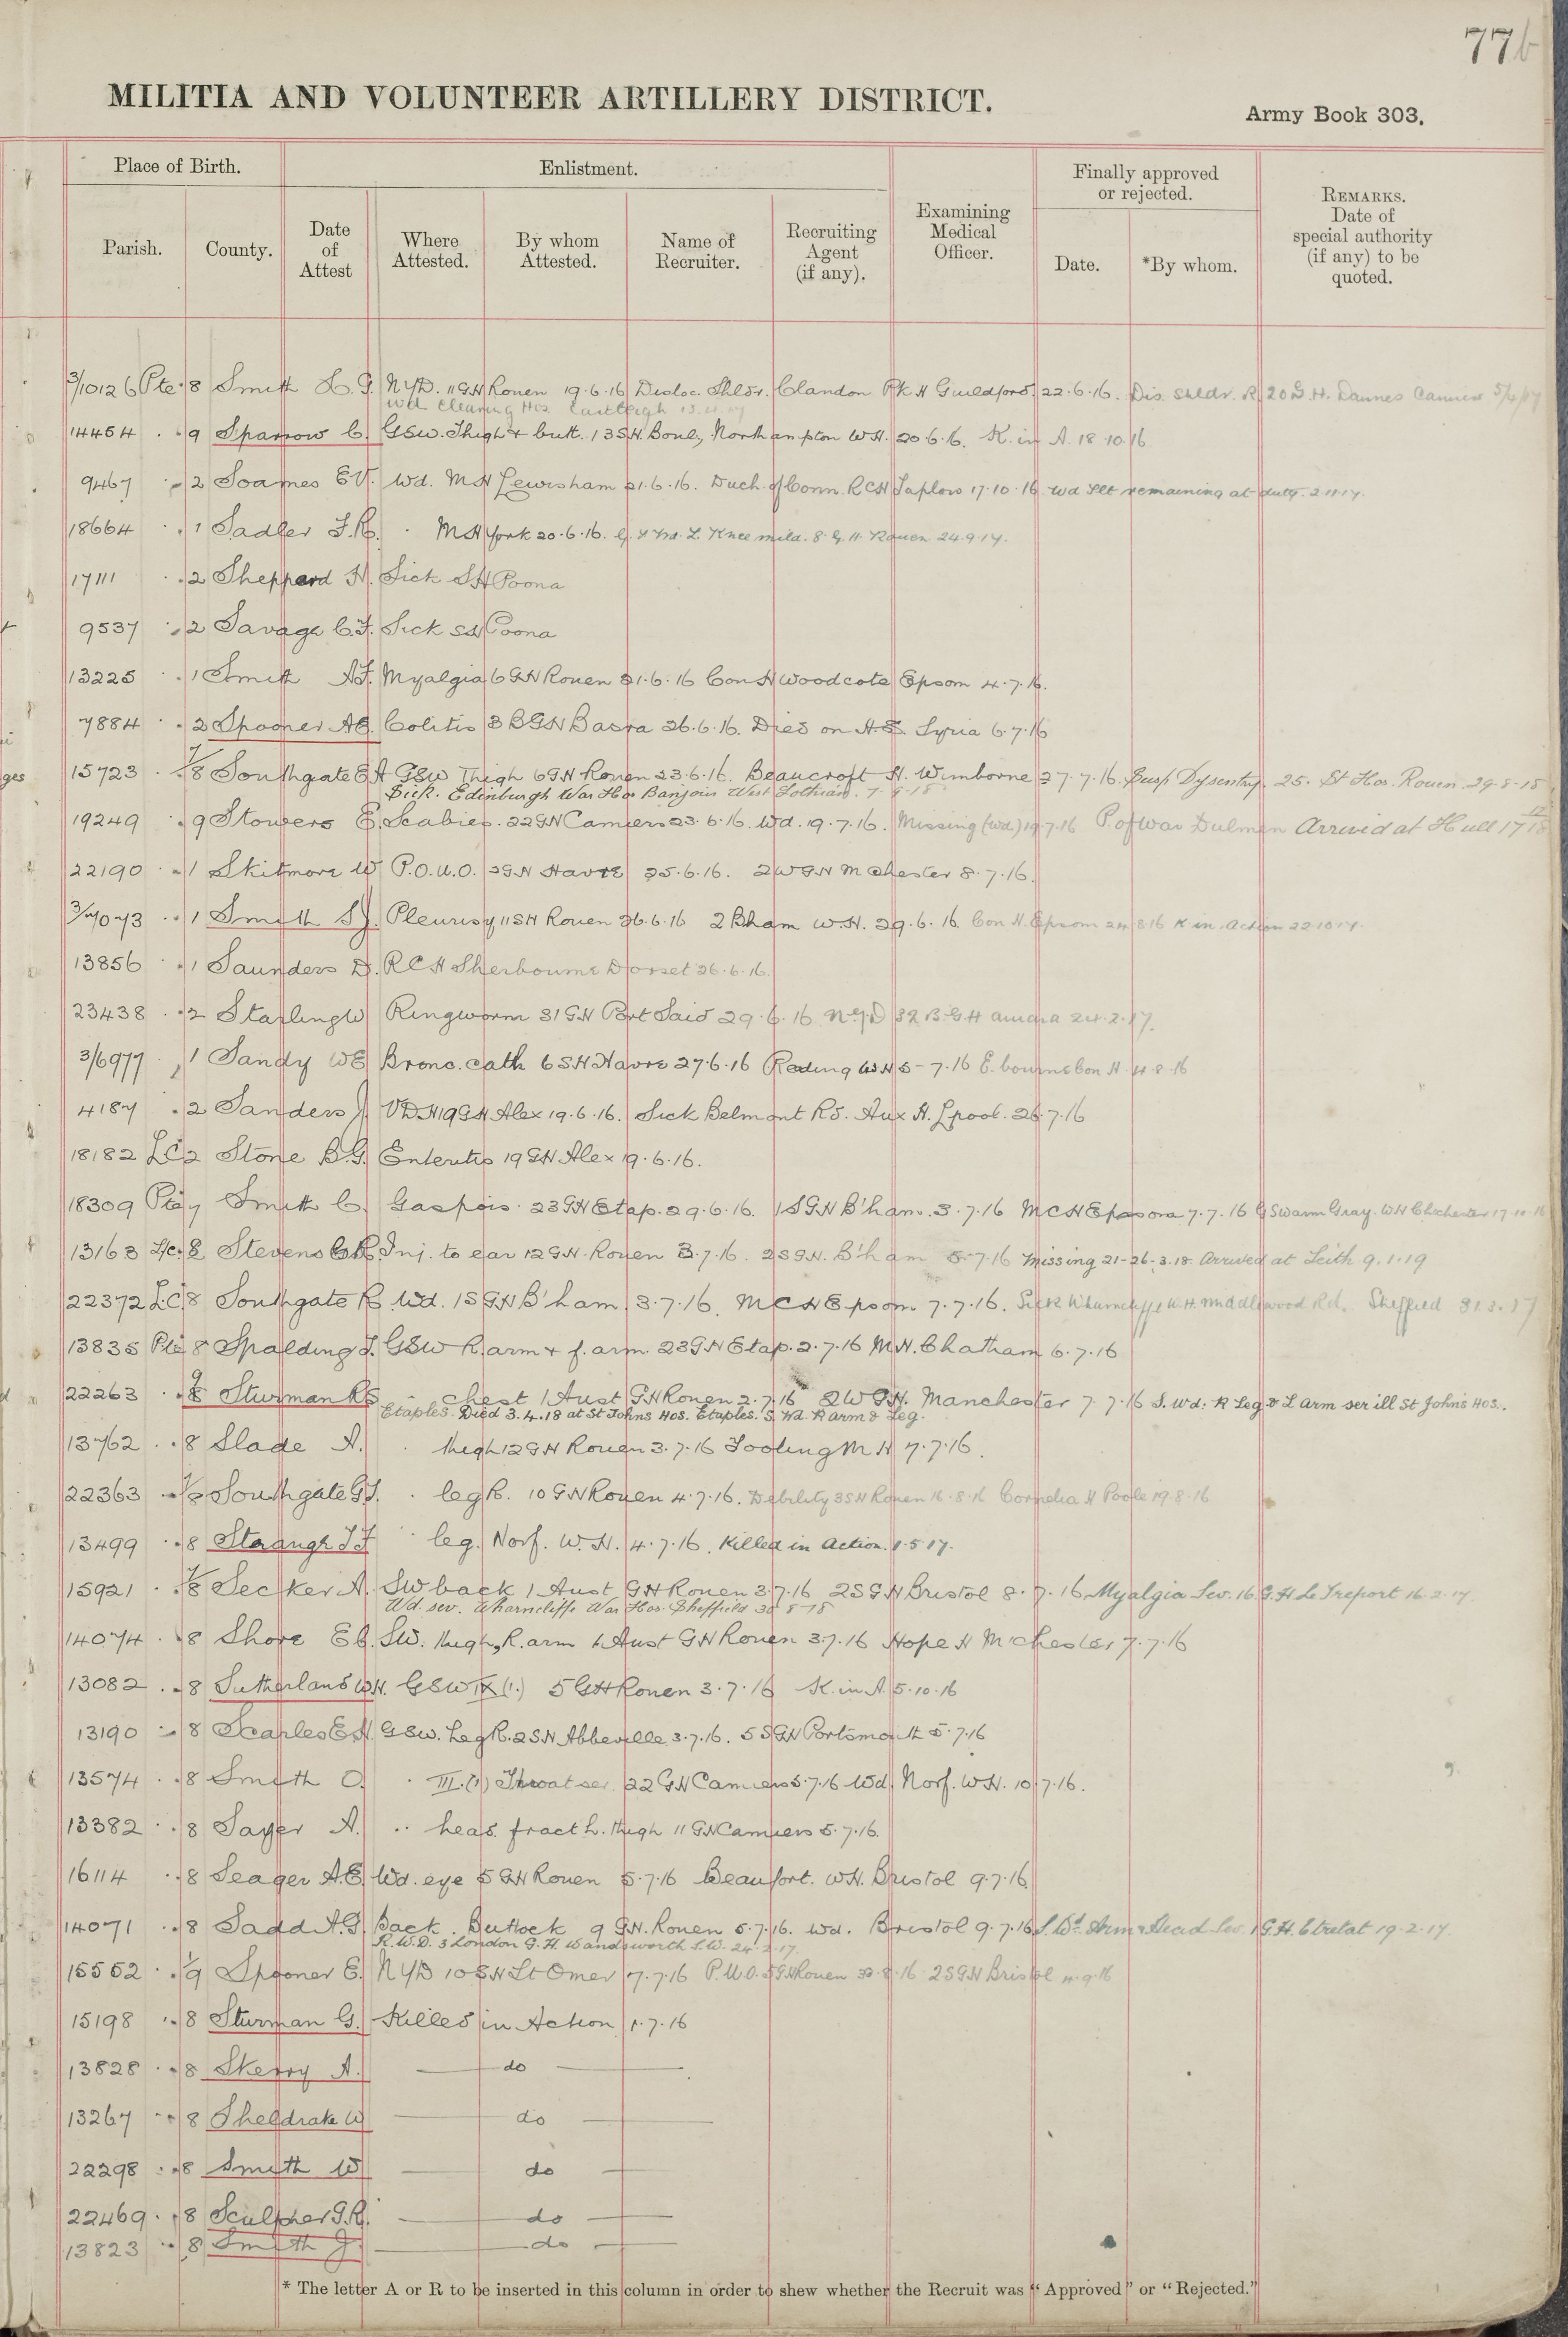 77b
MILITIA AND VOLUNTEER ARTILLERY DISTRICT.
Army Book 303.
Place of Birth.
Enlistment.
Finally approved or rejected.
Parish.
County.
Date of Attest
Where Attested.
By whom Attested.
Name of Recruiter.
Recruiting Agent (if any).
Examining Medical Officer.
Date.
*By whom.
REMARKS. Date of special authority (if any) to be quoted.
3/10126 Pte 8 Smith H. G. NYD. 11 GH Rouen 19.6.16 Disloc. Shldr. Clandon Pk H Guildford. 22.6.16. Dis. Shldr. R 20 G.H. Dannes Camiers 5/4/17
Wd Clearing Hos Eastleigh
14454 9 Sparrow C. GSW. Thigh & butt. 13SH. Boul, Northampton W.H. 20.6.16. K. in A. 18.10.16
9467 2 Soames EV. Wd. MH Lewisham 21.6.16. Duch. of Conn. RCH Taplow 17.10.16. Wd Slt remaining at duty. 2.11.17.
18664 1 Sadler F.R. MH York 20.6.16. L. Knee mild. 8. G. H. Rouen 24.9.17.
17111 2 Sheppard H. Sick SH Poona
9537 2 Savage C.F. Sick SH Poona
13225 1 Smith AF. Myalgia 6 GH Rouen 21.6.16 Con H Woodcote Epsom 4.7.16.
7884 2 Spooner AE. Colitis 3 BGH Basra 26.6.16. Died on H.S. Syria 6.7.16
15723 7/8 Southgate EA GSW Thigh 6GH Rouen 23.6.16. Beaucroft H. Wimborne 27.7.16. Susp Dysentry. 25. St Hos. Rouen. 29-8-18
Sick. Edinburgh War Hos Bangour West Lothian.
19249 9 Stowers E. Scabies. 22GH Camiers 23.6.16. Wd. 19.7.16. Missing (Wd) 19.7.16 P of War Dulmen Arrived at Hull 17
22190 1 Skitmore W P.O.U.O. 2GH Havre 25.6.16. 2WGH Mchester 8.7.16.
1 Smith SJ. Pleurisy 11SH Rouen 26.6.16 2 Bham W.H. 29.6.16. Con H. Epsom 24.8.16 K in Action 22.10.17.
13856 1 Saunders D. RCH Sherbourne Dorset 26.6.16.
23438 2 Starling W Ringworm 31 GH Port Said 29.6.16 NYD 32 B.G.H Amara 24.2.17.
3/6977 1 Sandy WE Bronc. cath 6SH Havre 27.6.16 Reding WH 5-7.16 E.bourne Con H. 4.8.16
4187 2 Sanders J. VDH 19GH Alex 19.6.16. Sick Belmont Rd. Aux H. Lpool. 26.7.16
18182 LC 2 Stone B.G. Enteritis 19 GH Alex 19.6.16.
18309 Pte 7 Smith C. Gas pois. 23GH Etap. 29.6.16. 1SGH B'ham. 3.7.16 MCH Epsom 7.7.16 Gray. WH Chichester 17.10.16
13163 L/c. 8 Stevens Inj. to ear 12 GH. Rouen 3.7.16. 2SGH. B'ham 5.7.16 Missing 21-26.3.18. Arrived at Leith 9.1.19
22372 LC 8 Southgate R. Wd. 1SGH B'ham 3.7.16. MCH Epsom 7.7.16. Sick Wharncliffe W.H. Middlewood Rd. Sheffield 31.3.17
13835 Pte 8 Spalding J. GSW R. arm & f. arm. 23GH Etap. 2.7.16 M.H. Chatham 6.7.16
22263 8 Sturman RS chest 1 Aust GH Rouen 2.7.16 2WGH. Manchester 7.7.16 S. Wd. R Leg & L Arm ser ill St Johns Hos.
Etaples. Died 3.4.18 at St Johns Hos. Etaples. S. Wd. R arm & Leg.
13762 8 Slade A. thigh 12GH Rouen 3.7.16 Tooting M H 7.7.16.
22363 Southgate GJ. leg R. 10 GH Rouen 4.7.16. Debility 3SH Rouen 16.8.16 Cornelia H Poole 19.8.16
13499 8 Straugh leg. Norf. W.H. 4.7.16. Killed in Action. 1.5.17.
15921 Secker A. SW back 1 Aust GH Rouen 3.7.16 2SGH Bristol 8.7.16 Myalgia Sev. 16 G.H Le Treport 16.2.17
Wd. sev. Wharncliffe War Hos. Sheffield
14074 8 Shore EC. SW. thigh, R. arm 1 Aust GH Rouen 3.7.16 Hope H Mchester 7.7.16
13082 8 Sutherland WH. GSW IX (1.) 5 GH Rouen 3.7.16 K. in A. 5.10.16
13190 8 Scarles EH GSW. Leg R. 2SH Abbeville 3.7.16. 5SGH Portsmouth 5.7.16
13574 8 Smith O. III.(1) Throat ser. 22 GH Camiers 5.7.16 Wd. Norf. W.H. 10.7.16.
13382 8 Sayer A. head. fract L. thigh 11 GH Camiers 5.7.16.
16114 8 Seager A.E. Wd. eye 5 GH Rouen 5.7.16 Beaufort. WH. Bristol 9.7.16
14071 8 Sadd A.G. Back. Buttock 9 GH. Rouen 5.7.16. Wd. Bristol 9.7.16 S. Wd. Arm & Head Sev. 1 G.H. Etretat 19.2.17.
3 London G.H. Wandsworth S.W. 24.2.17.
15552 Spooner E. NYD 10SH St Omer 7.7.16 P.U.O. 5GH Rouen 2SGH Bristol 4.9.16
15198 8 Sturman G. Killed in Action 1.7.16
13828 8 Skerry A. do
13267 8 Sheldrake W do
22298 8 Smith W do
22469 8 Sculpher G.R. do
13823 8 Smith J. do
* The letter A or R to be inserted in this column in order to shew whether the Recruit was “Approved” or “Rejected.”